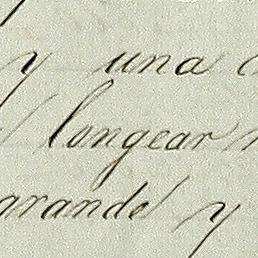 y una
longear
grande y